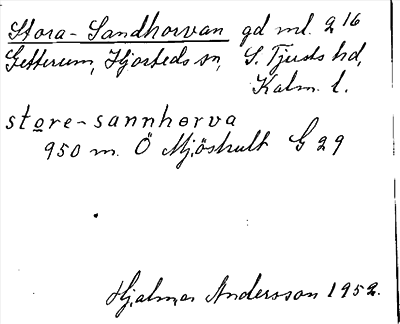 Stora-Sandhorvan gd ml. 2 16
Getterum, Hjorteds sn, S. Tjusts hd,
Kalm. l.
store-sannhorva
950 m. Ö Mjöshult G 29
Hjalmar Andersson 1952.